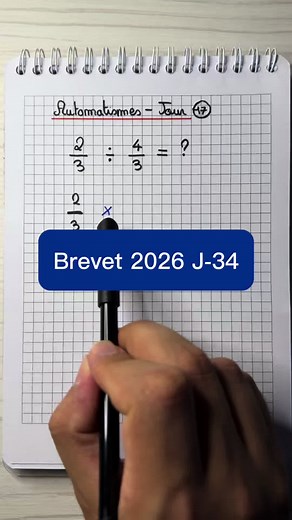 Automatismes - Jour 17
2/3 ÷ 4/3 = ?
2/3 ×
Brevet 2026 J-34